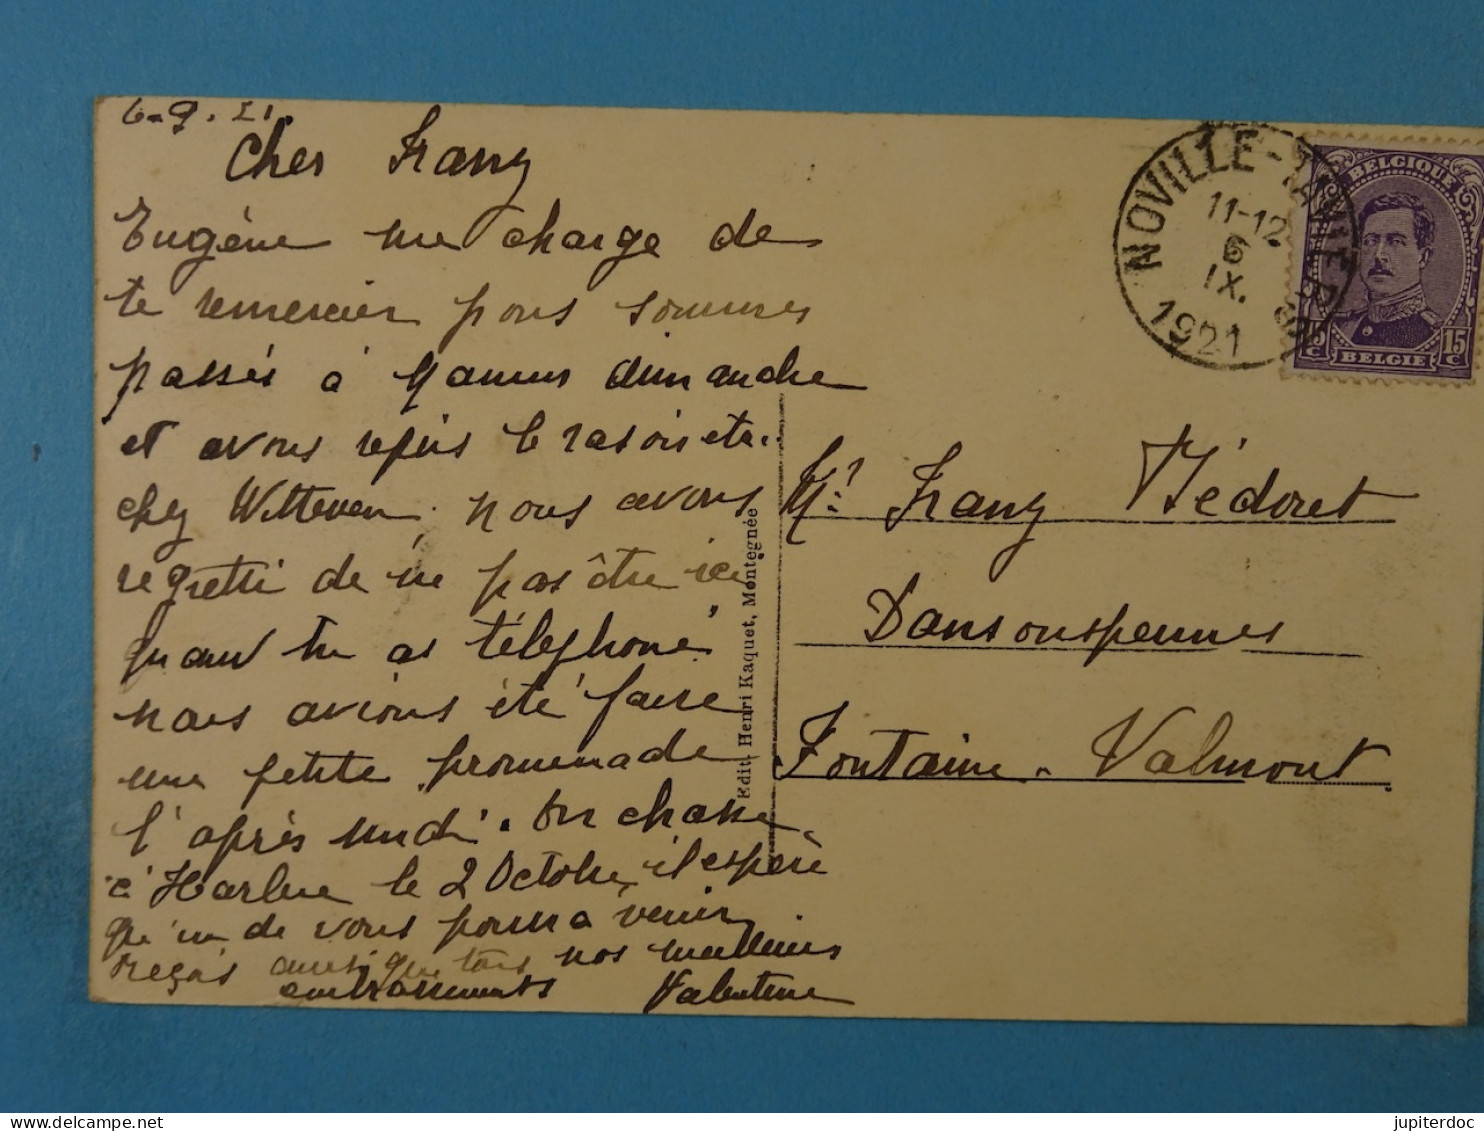 6-9.21.
Cher Franz
Eugène me charge de
te remercier nous sommes
passés à Namur dimanche
et avons repris le rasoir etc.
chez Witteven, nous avons
regretté de ne pas être ici
quand tu as téléphoné
nous avions été faire
une petite promenade
l'après midi. On chasse
à Harlue le 2 Octobre, il espère
qu'un de vous pourra venir
reçois ainsi que tous nos meilleurs
embrassements Valentine
Edit. Henri Kaquet, Montegnée
NOVILLE-TAVIERS
11-12
6
IX.
1921
BELGIQUE
15 C 15 C
BELGIE
Mr. Franz Médoret
Dansouspennes
Fontaine-Valmont
jupiterdoc